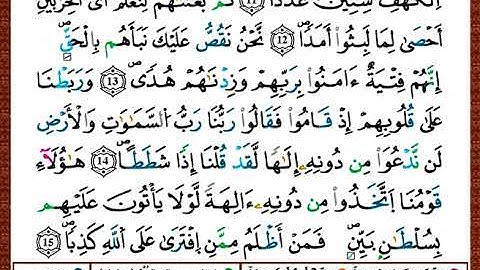 ٱلْكَهْفِ سِنِينَ عَدَدًا ۝11 ثُمَّ بَعَثْنَٰهُمْ لِنَعْلَمَ أَىُّ ٱلْحِزْبَيْنِ
أَحْصَىٰ لِمَا لَبِثُوٓا۟ أَمَدًا ۝12 نَّحْنُ نَقُصُّ عَلَيْكَ نَبَأَهُم بِٱلْحَقِّ
إِنَّهُمْ فِتْيَةٌ ءَامَنُوا۟ بِرَبِّهِمْ وَزِدْنَٰهُمْ هُدًى ۝13 وَرَبَطْنَا
عَلَىٰ قُلُوبِهِمْ إِذْ قَامُوا۟ فَقَالُوا۟ رَبُّنَا رَبُّ ٱلسَّمَٰوَٰتِ وَٱلْأَرْضِ
لَن نَّدْعُوَا۟ مِن دُونِهِۦٓ إِلَٰهًا لَّقَدْ قُلْنَآ إِذًا شَطَطًا ۝14 هَٰٓؤُلَآءِ
قَوْمُنَا ٱتَّخَذُوا۟ مِن دُونِهِۦٓ ءَالِهَةً لَّوْلَا يَأْتُونَ عَلَيْهِم
بِسُلْطَٰنٍۭ بَيِّنٍ فَمَنْ أَظْلَمُ مِمَّنِ ٱفْتَرَىٰ عَلَى ٱللَّهِ كَذِبًا ۝15